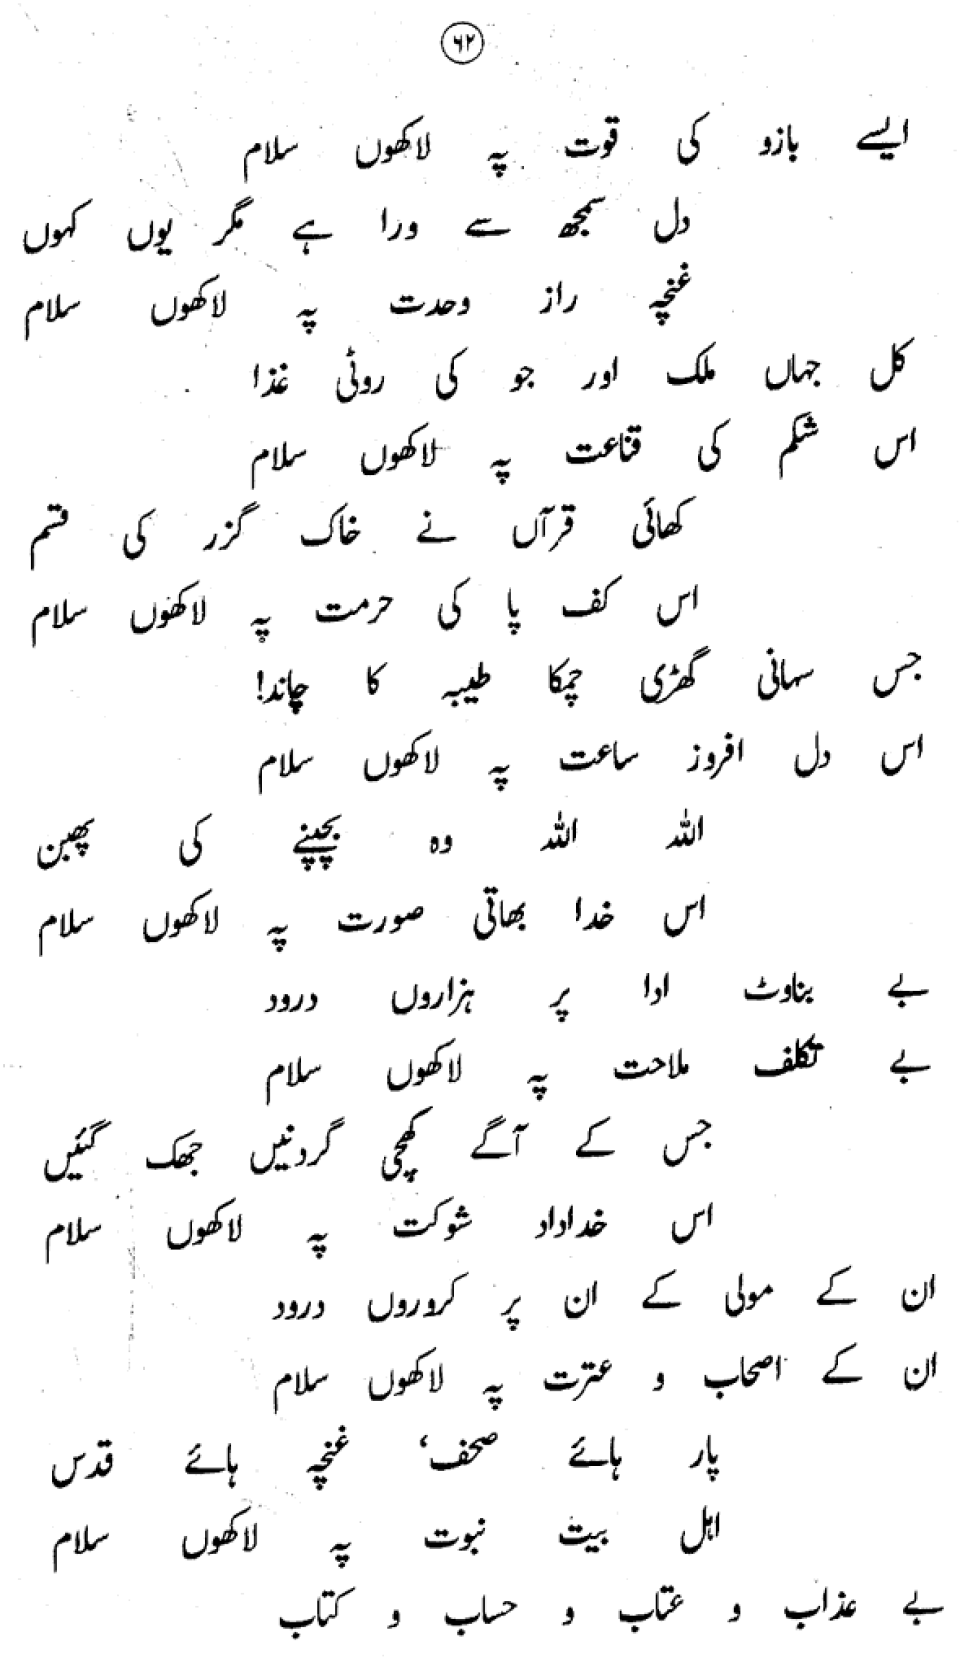 ۶۲
ایسے بازو کی قوت پہ لاکھوں سلام
دل سمجھ سے ورا ہے مگر یوں کہوں
غنچہ راز وحدت پہ لاکھوں سلام
کل جہاں ملک اور جو کی روٹی غذا
اس شکم کی قناعت پہ لاکھوں سلام
کھائی قرآں نے خاک گزر کی قسم
اس کف پا کی حرمت پہ لاکھوں سلام
جس سہانی گھڑی چمکا طیبہ کا چاند!
اس دل افروز ساعت پہ لاکھوں سلام
اللہ اللہ وہ بچپنے کی پھبن
اس خدا بھاتی صورت پہ لاکھوں سلام
بے بناوٹ ادا پر ہزاروں درود
بے تکلف ملاحت پہ لاکھوں سلام
جس کے آگے کھچی گردنیں جھک گئیں
اس خداداد شوکت پہ لاکھوں سلام
ان کے مولی کے ان پر کروروں درود
ان کے اصحاب و عترت پہ لاکھوں سلام
پار ہائے صحف، غنچہ ہائے قدس
اہل بیت نبوت پہ لاکھوں سلام
بے عذاب و عتاب و حساب و کتاب